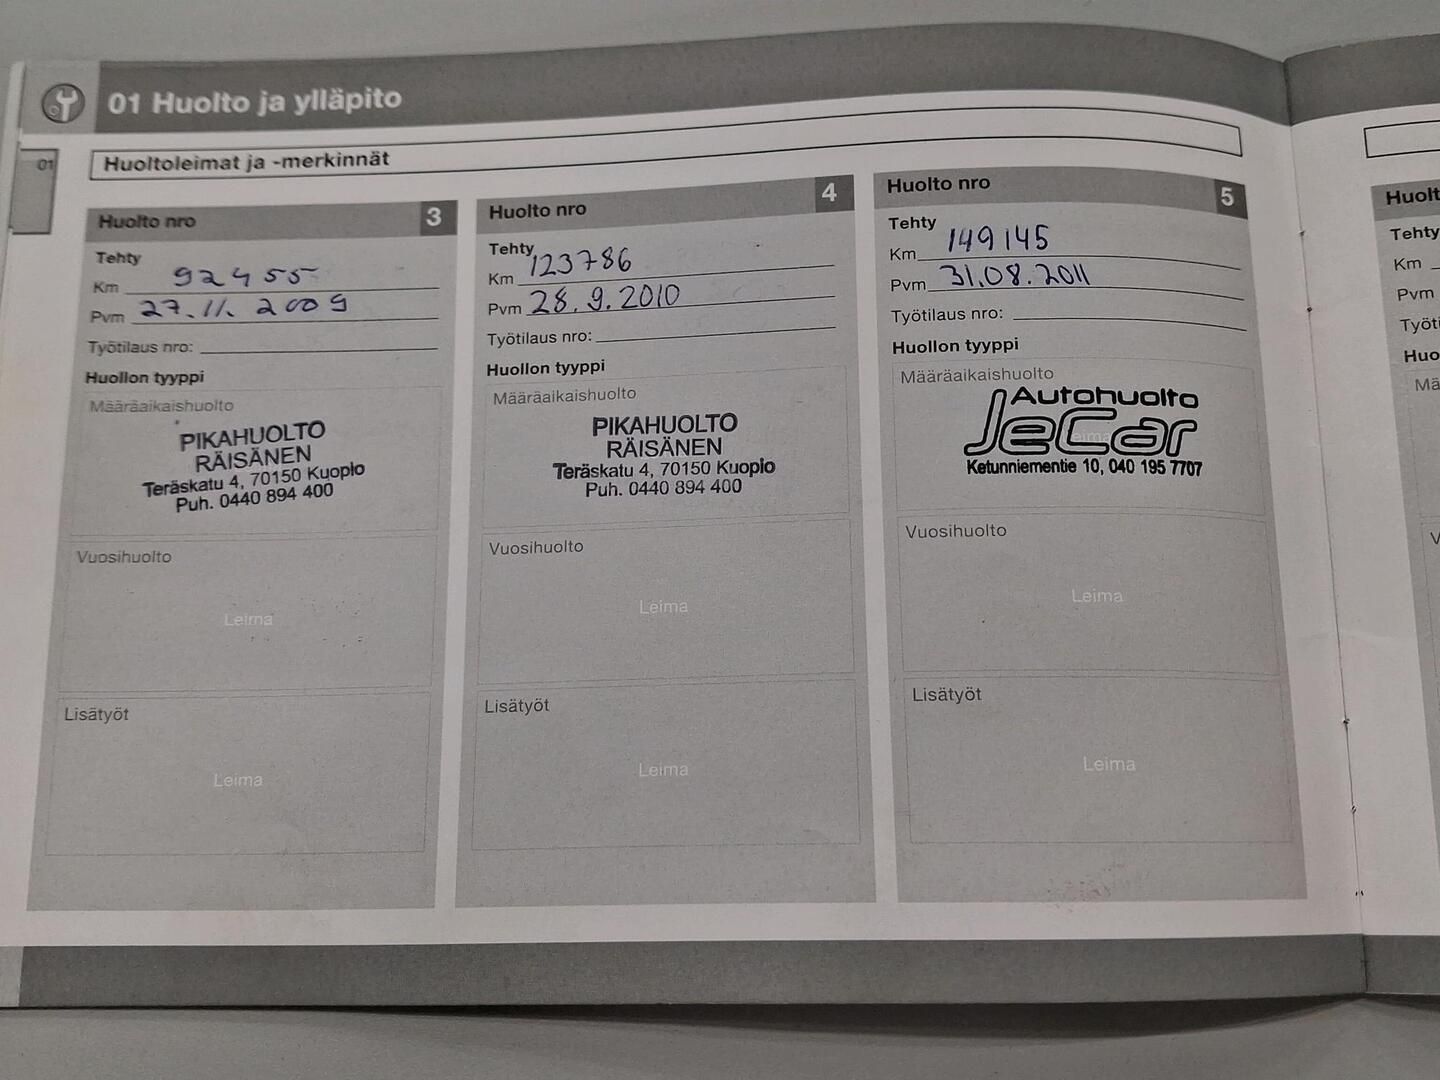 01 Huolto ja ylläpito
01
Huoltoleimat ja -merkinnät
Huolto nro 3
Tehty
Km 92455
Pvm 27.11.2009
Työtilaus nro:
Huollon tyyppi
Määräaikaishuolto
PIKAHUOLTO
RÄISÄNEN
Teräskatu 4, 70150 Kuopio
Puh. 0440 894 400
Vuosihuolto
Leima
Lisätyöt
Leima
Huolto nro 4
Tehty
Km 123786
Pvm 28.9.2010
Työtilaus nro:
Huollon tyyppi
Määräaikaishuolto
PIKAHUOLTO
RÄISÄNEN
Teräskatu 4, 70150 Kuopio
Puh. 0440 894 400
Vuosihuolto
Leima
Lisätyöt
Leima
Huolto nro 5
Tehty
Km 149145
Pvm 31.08.2011
Työtilaus nro:
Huollon tyyppi
Määräaikaishuolto
Autohuolto
JeCar
Ketunniementie 10, 040 195 7707
Vuosihuolto
Leima
Lisätyöt
Leima
Tehty
Km
Pvm